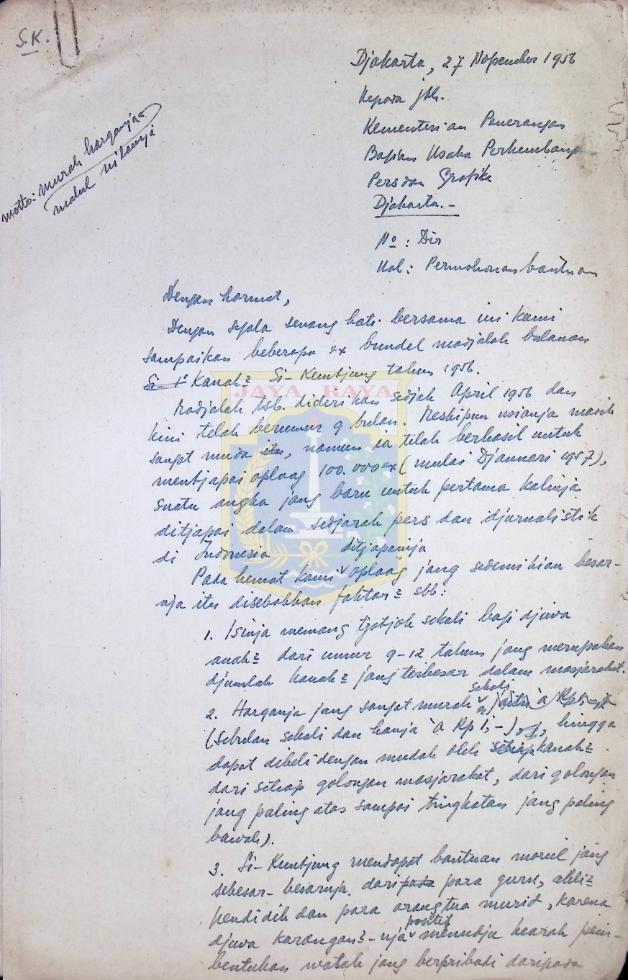 S.K.
Djakarta, 27 Nopember 1956
Kepada jth.
Kementerian Penerangan
Bagian Usaha Perkembangan
Pers dan Grafika
Djakarta.-
motto: murah harganja
mahal nilainja
No : Dir
Hal : Permohonan bantuan
Dengan hormat,
Dengan segala senang hati bersama ini kami
sampaikan beberapa ex bundel madjalah bulanan
Kanak2 Si-Kuntjung tahun 1956.
JAYA RAYA
Madjalah tsb. didirikan sedjak April 1956 dan
kini telah berumur 9 bulan. Meskipun usianja masih
sangat muda itu, namun ia telah berhasil untuk
mentjapai oplaag 100.000 ex (mulai Djanuari 1957),
suatu angka jang baru untuk pertama kalinja
ditjapai dalam sedjarah pers dan djurnalistik
di Indonesia
Pada hemat kami ditjapainja oplaag jang sedemikian besar-
nja itu disebabkan faktor2 sbb:
1. Isinja memang tjotjok sekali bagi djiwa
anak2 dari umur 9-12 tahun jang merupakan
djumlah kanak2 jang terbesar dalam masjarakat.
2. Harganja jang sangat murah sekali
(sebulan sekali dan hanja à Rp 1,-), hingga
dapat dibeli dengan mudah oleh setiap kanak2
dari setiap golongan masjarakat, dari golongan
jang paling atas sampai tingkatan jang paling
bawah).
3. Si-Kuntjung mendapat bantuan moril jang
sebesar-besarnja, daripada para guru, ahli2
pendidik dan para orang tua murid, karena
djiwa karangan2-nja positif menudju kearah pem-
bentukan watak jang berpribadi daripada